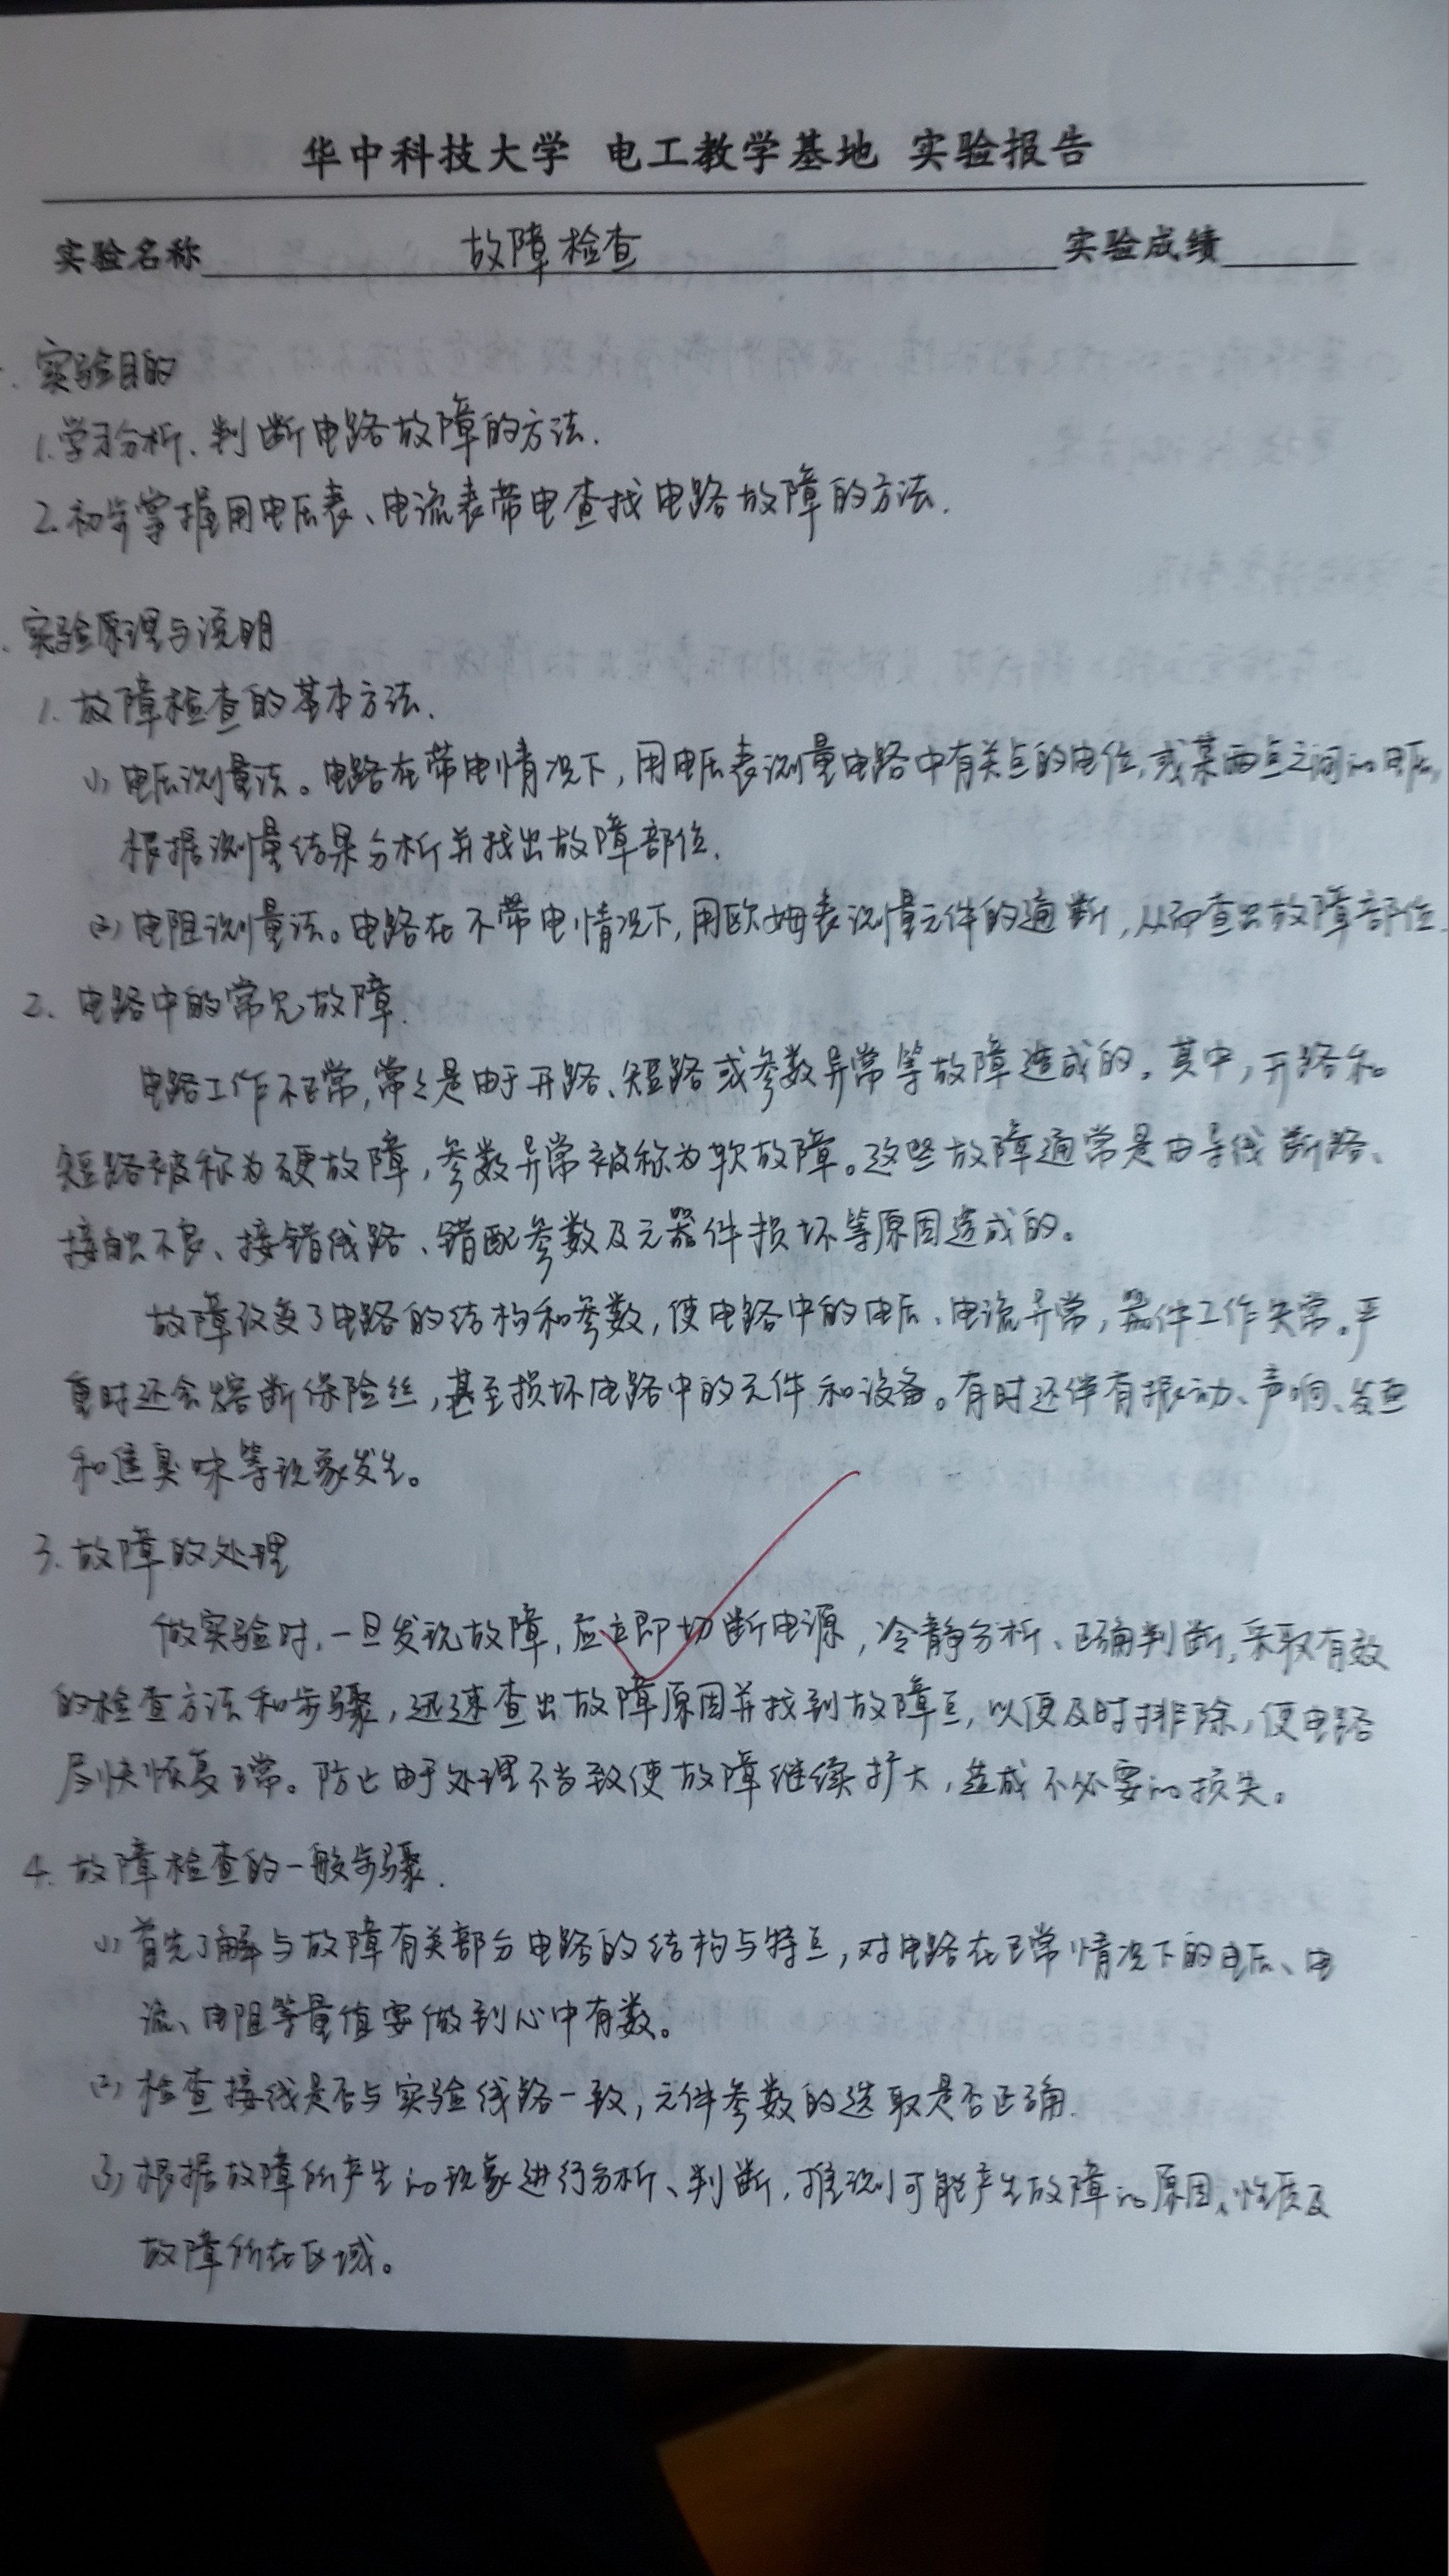 华中科技大学 电工教学基地 实验报告
实验名称 故障检查 实验成绩
、实验目的
1.学习分析、判断电路故障的方法.
2.初步掌握用电压表、电流表带电查找电路故障的方法.
、实验原理与说明
1.故障检查的基本方法.
(1)电压测量法。电路在带电情况下,用电压表测量电路中有关点的电位,或某两点之间的电压,
根据测量结果分析并找出故障部位.
(2)电阻测量法。电路在不带电情况下,用欧姆表测量元件的通断,从而查出故障部位.
2.电路中的常见故障.
电路工作不正常,常々是由于开路、短路或参数异常等故障造成的。其中,开路和
短路被称为硬故障,参数异常被称为软故障。这些故障通常是由导线断路、
接触不良、接错线路、错配参数及元器件损坏等原因造成的。
故障改变了电路的结构和参数,使电路中的电压、电流异常,器件工作失常。严
重时还会熔断保险丝,甚至损坏电路中的元件和设备。有时还伴有振动、声响、发热
和焦臭味等现象发生。
3.故障的处理
做实验时,一旦发现故障,应立即切断电源,冷静分析、正确判断,采取有效
的检查方法和步骤,迅速查出故障原因并找到故障点,以便及时排除,使电路
尽快恢复正常。防止由于处理不当致使故障继续扩大,造成不必要的损失。
4.故障检查的一般步骤.
(1)首先了解与故障有关部分电路的结构与特点,对电路在正常情况下的电压、电
流、电阻等量值要做到心中有数。
(2)检查接线是否与实验线路一致,元件参数的选取是否正确.
(3)根据故障所产生的现象进行分析、判断,推测可能产生故障的原因、性质及
故障所在区域。